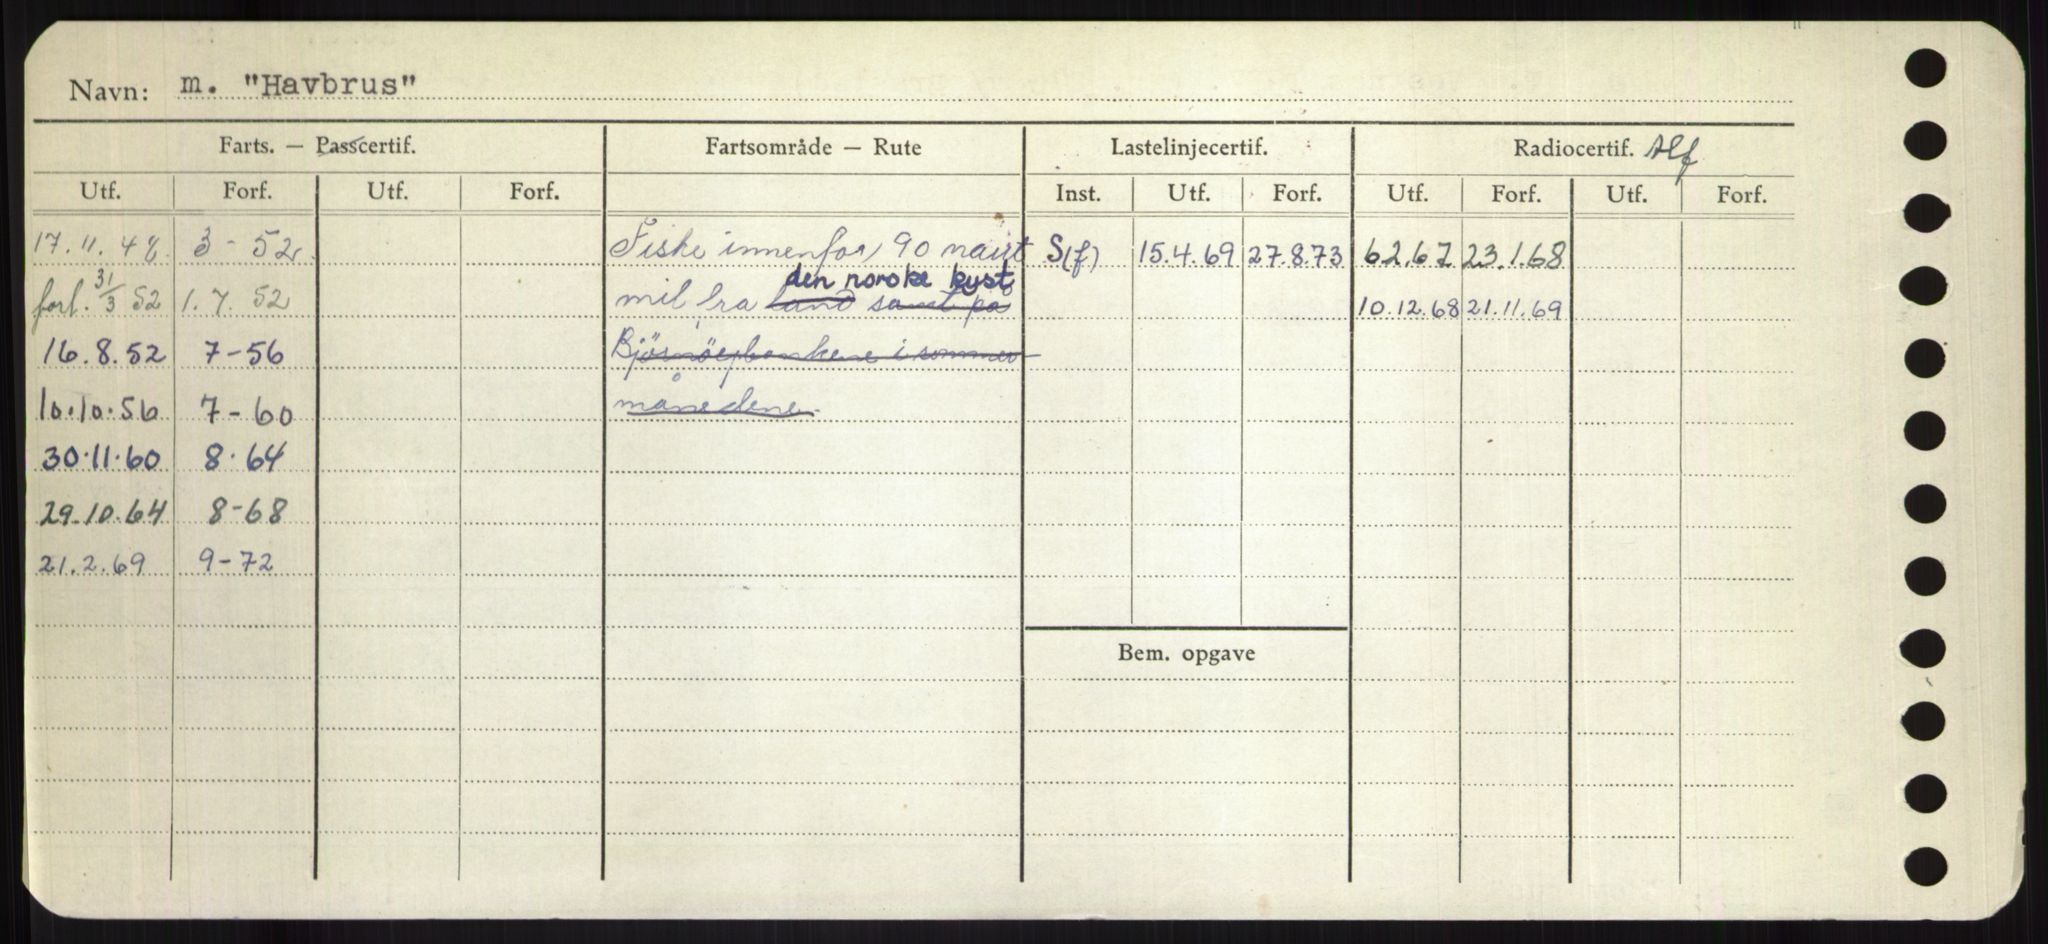 Navn: m. "Havbrus"
Farts. — Passcertif. Fartsområde — Rute Lastelinjecertif. Radiocertif. Tlf
Utf. Forf. Utf. Forf. Inst. Utf. Forf. Utf. Forf. Utf. Forf.
17.11.48 3-52 Fiske innenfor 90 naut S(f) 15.4.69 27.8.73 6.2.67 23.1.68
den norske kyst
forl. 31/3 52 1.7.52 mil fra land samt på 10.12.68 21.11.69
16.8.52 7-56 Bjørnøybankene i sommer
10.10.56 7-60 månedene.
30.11.60 8.64
29.10.64 8-68
21.2.69 9-72
Bem. opgave